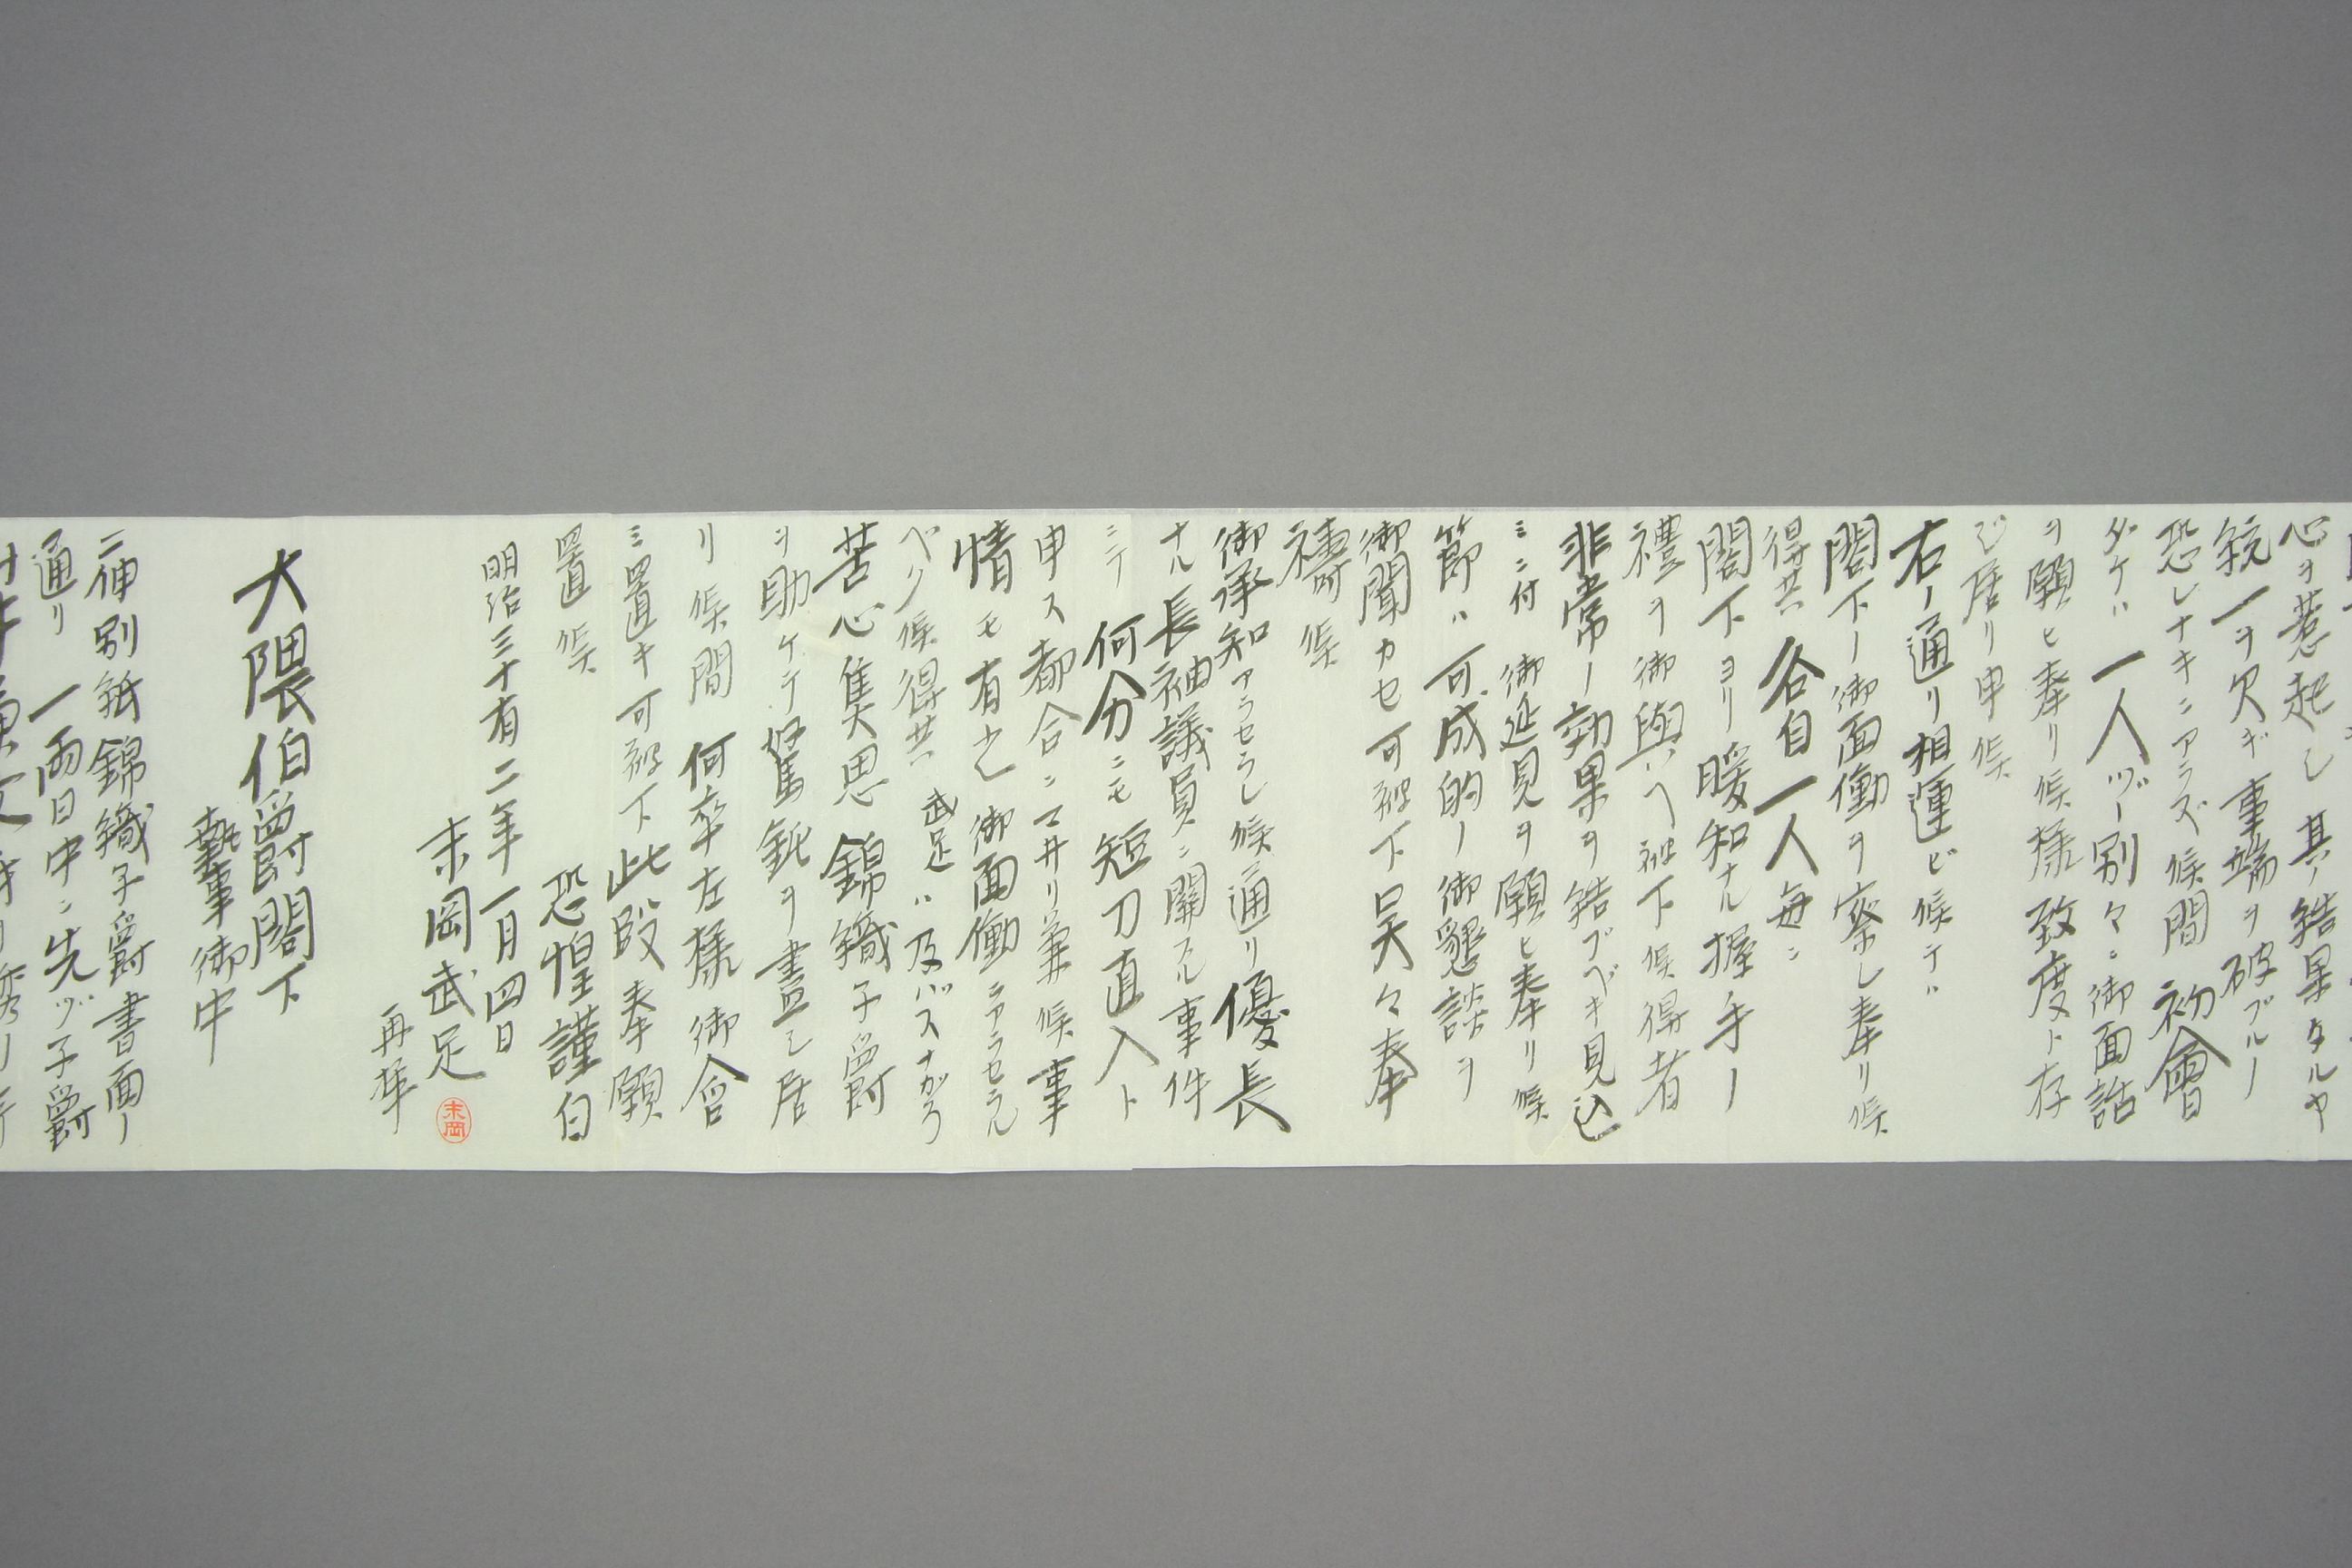 心ヲ惹起シ其ノ結果タルヤ
銃一ヲ欠ギ事端ヲ破ブルノ
恐レナキニアラズ候間初會
ダケハ一人ヅヽ別々ニ御面話
ヲ願ヒ奉リ候樣致度ト存
ジ居リ申候
右ノ通リ相運ビ候テハ
閣下ノ御面働ヲ察シ奉リ候
得共各自一人毎ニ
閣下ヨリ暖和ナル握手ノ
禮ヲ御與ヘ被下候得者
非常ノ効果ヲ結ブベキ見込
ミニ付御延見ヲ願ヒ奉リ候
節ハ可成的ノ御懇談ヲ
御聞カセ可被下呉々奉
禱候
御承知アラセラレ候通リ優長
ナル長袖議員ニ關スル事件
ニテ何分ニモ短刀直入ト
申ス都合ニマ井リ兼候事
情モ有之御面働ニアラセラル
ベク候得共武足ハ及バスナガラ
苦心焦思錦織子爵
ヲ助ケテ駑鈍ヲ盡シ居
リ候間何卒左樣御含
ミ置キ可被下此段奉願
置候
恐惶謹白
明治三十有二年一月四日
末岡武足
末岡
再拜
大隈伯爵閣下
執事御中
二伸別紙錦織子爵書面ノ
通リ一兩日中ニ先ヅ子爵